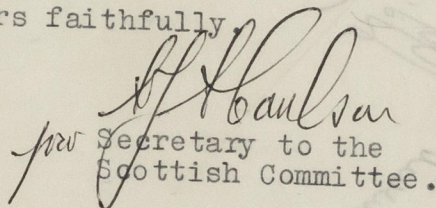 rs faithfully,
pro Secretary to the
Scottish Committee.